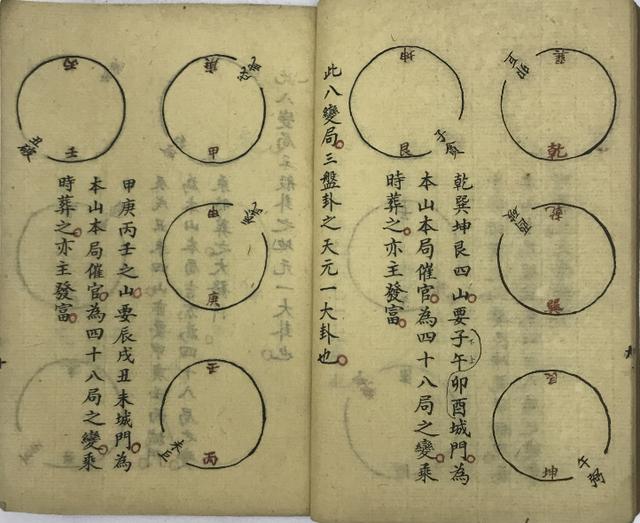 巽
乾
乾
巽
艮
坤
乾巽坤艮四山要子午卯酉城門為
本山本局催官為四十八局之變乘
時葬之亦主發富
坤
艮
此八變局三盤卦之天元一大卦也
庚
甲
甲
庚
壬
丙
甲庚丙壬之山要辰戌丑未城門為
本山本局催官為四十八局之變乘
時葬之亦主發富
丙
壬